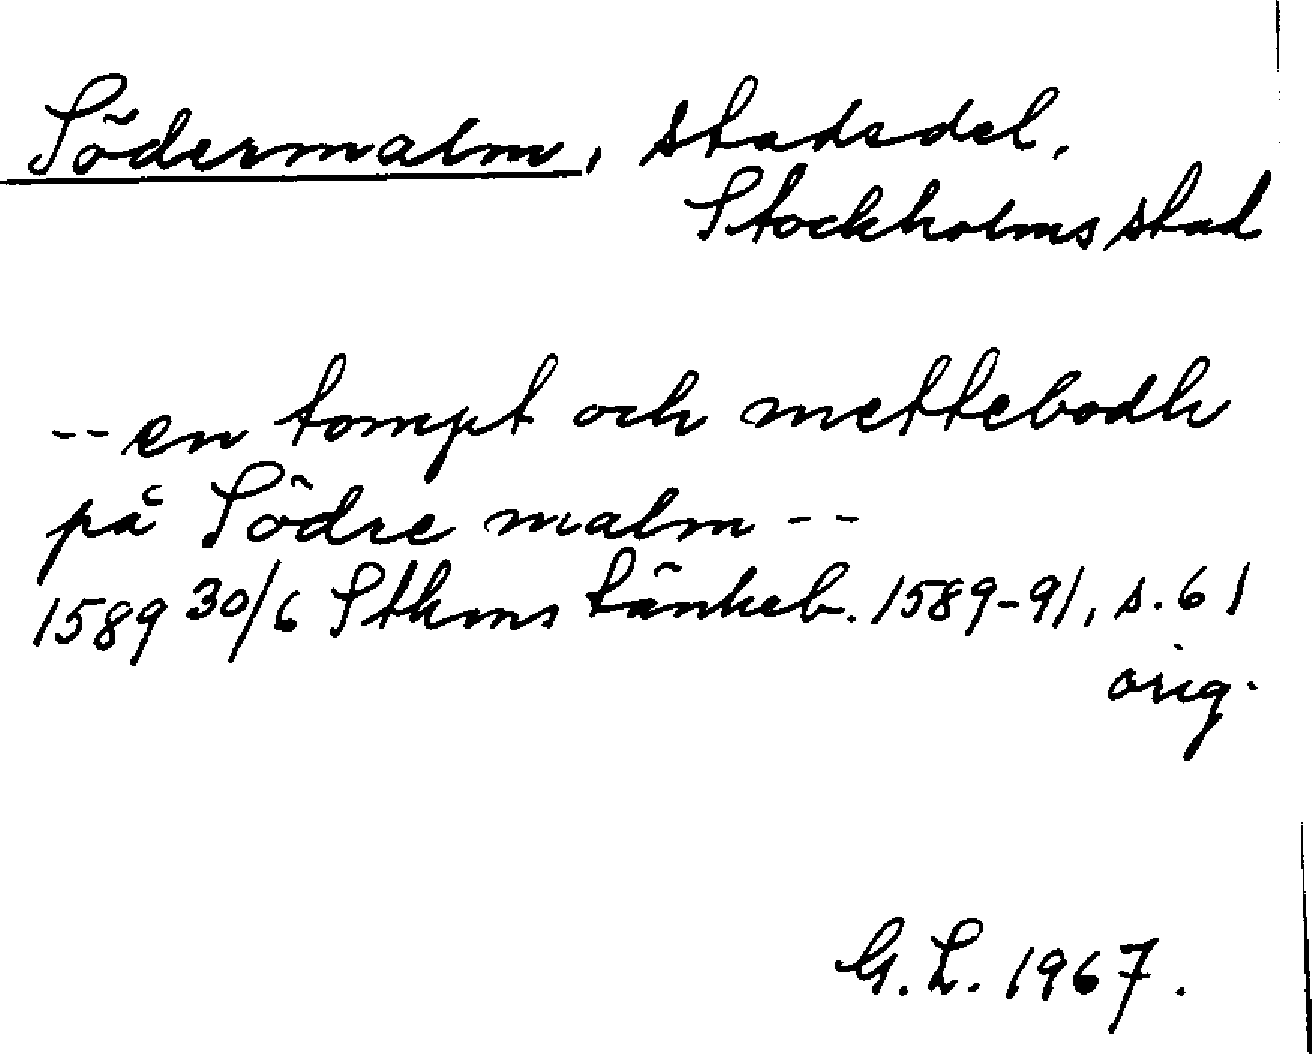 Södermalm, stadsdel,
Stockholms stad
-- en tompt och mettebodh
på Södre malm --
1589 30/6 Sthms tänkeb. 1589-91, s. 61
orig.
G. L. 1967.